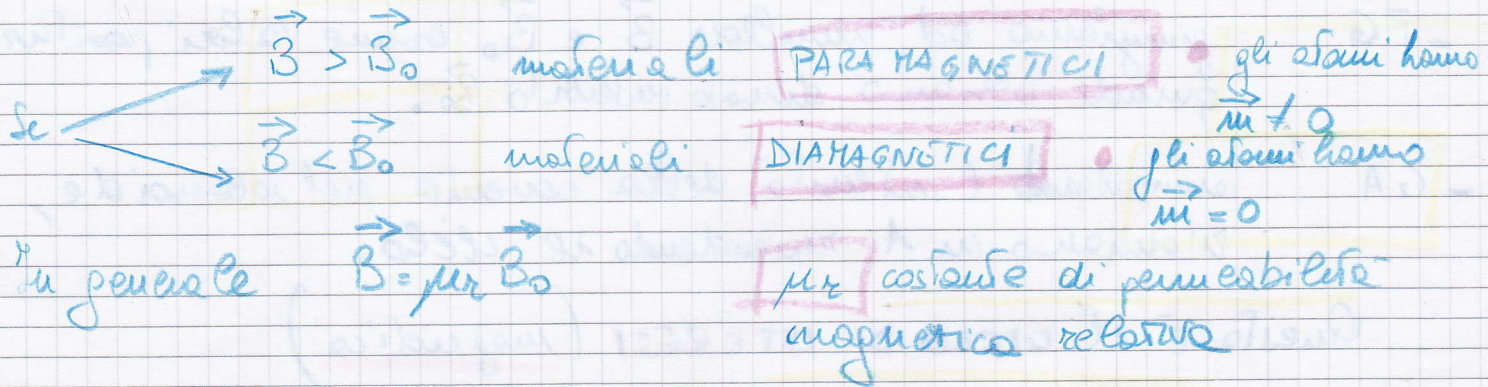 Se
B⃗ > B⃗₀ materiali PARAMAGNETICI • gli atomi hanno
m⃗ ≠ 0
B⃗ < B⃗₀ materiali DIAMAGNETICI • gli atomi hanno
m⃗ = 0
In generale B⃗ = μr B⃗₀ μr costante di permeabilità
magnetica relativa